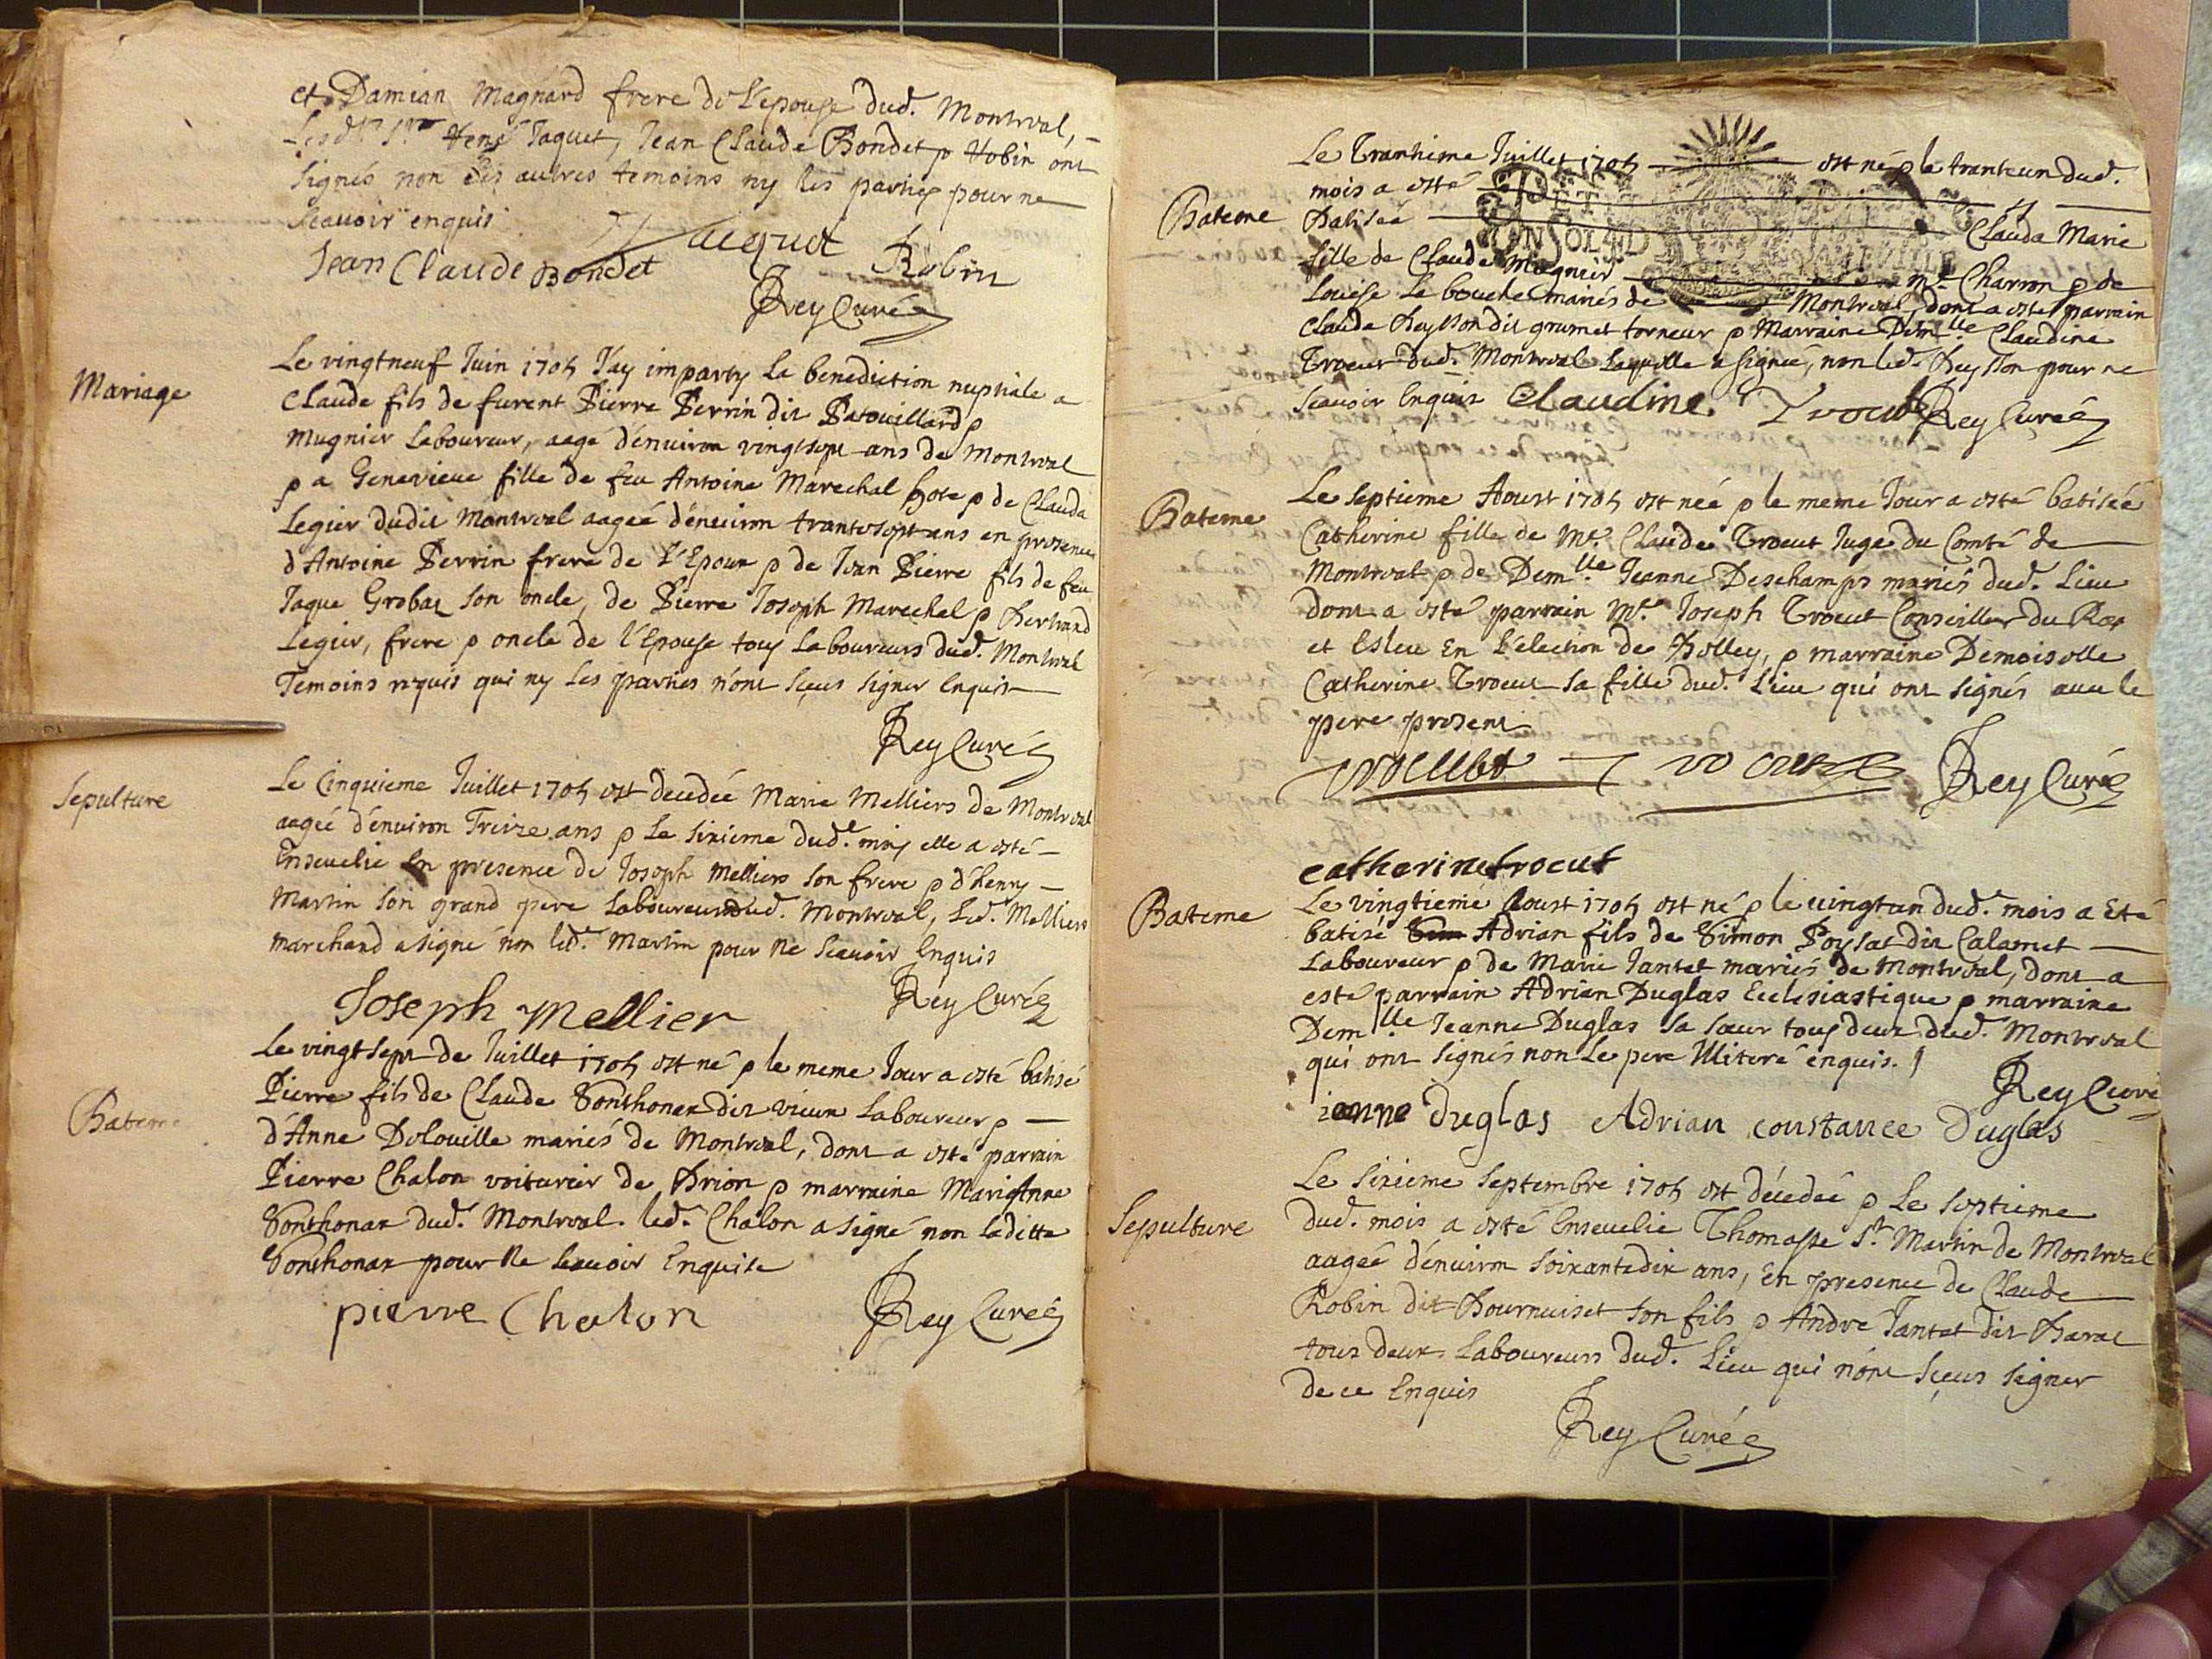 et Damian Magnard frere de l'epouse dud. Montreal,
René Jaquet, Jean Claude Bondet p Robin ont
signés non les autres temoins ny les parties pour ne
scavoir enquis
Jean Claude Bondet Jacquet Robin
Rey Curé
Mariage
Le vingtneuf Juin 1705 J'ay imparty la benediction nuptiale a
Claude fils de furent Pierre Perrin dit Patouillard p
Mugnier Laboureur, aagé d'environ vingtsept ans de Montreal
p a Genevieve fille de feu Antoine Marechal hote p de Clauda
Legier dudit Montreal aageé d'environ trantesept ans en presence
d'Antoine Perrin frere de l'Epoux p de Jean Pierre fils de feu
Jaque Grobaz son oncle, de Pierre Joseph Marechal p Bertrand
Legier, frere p oncle de l'Epouse tous Laboureurs dud. Montreal
Temoins requis qui ny les parties n'ont sçeus signer Enquis
Rey Curé
Sepulture
Le Cinquieme Juillet 1705 est decedeé Marie Melliers de Montreal
aageé d'environ Treize ans p le sixieme dud. mois elle a esté
Ensevelie En presence de Joseph Melliers son frere p d'henry
Martin son grand pere Laboureur dud. Montreal, Led. Melliers
marchand a signé non led. Martin pour ne scavoir Enquis
Rey Curé
Joseph Mellier
Bateme
Le vingtsept de Juillet 1705 est né p le meme Jour a esté batisé
Pierre fils de Claude Sonthonax dit vieux Laboureur p
d'Anne Delouille mariés de Montreal, dont a esté parrain
Pierre Chalon voiturier de Brion p marraine MarieAnne
Sonthonax dud. Montreal. led. Chalon a signé non laditte
Sonthonax pour ne scavoir Enquise
pierre Chalon Rey Curé
Bateme
Le Trantieme Juillet 1705 est né p le tranteun dud.
mois a esté
Batiseé Clauda Marie
fille de Claude Mugnier Me Charron p de
Louise Le bouche mariés de Montreal, dont a esté parrain
Claude Reydon dit grumet torneur p Marraine Demlle Claudine
Trocut dud. Montreal Laquelle a signé, non led. pour ne
scavoir Enquis Claudine Trocut Rey Curé
Bateme
Le septieme Aoust 1705 est neé p le meme Jour a esté batiseé
Catherine fille de Me Claude Trocut Juge du Comté de
Montreal p de Demlle Jeanne Deschamps mariés dud. Lieu
dont a esté parrain Me Joseph Trocut Conseiller du Roy
et Esleu En l'election de Belley, p marraine Demoiselle
Catherine Trocut sa fille dud. Lieu qui ont signés avec le
pere present
Trocut Trocut Rey Curé
catherine trocut
Bateme
Le vingtieme Aoust 1705 est né p le vingtun dud. mois a Eté
batisé Sim Adrian fils de Simon Poysat dit Calamet
Laboureur p de Marie Jantet mariés de Montreal, dont a
esté parrain Adrian Duglas Ecclesiastique p marraine
Demlle Jeanne Duglas sa sœur tous deux dud. Montreal
qui ont signés non Le pere illiteré enquis.
Rey Curé
ienne Duglas Adrian constance Duglas
Sepulture
Le sixieme Septembre 1705 est décedeé p Le septieme
dud. mois a esté Ensevelie Thomasse St. Martin de Montreal
aageé d'environ soixantedix ans, En presence de Claude
Robin dit son fils p André Jantet dit
tous deux Laboureurs dud. Lieu qui n'ont sçeus signer
de ce Enquis
Rey Curé